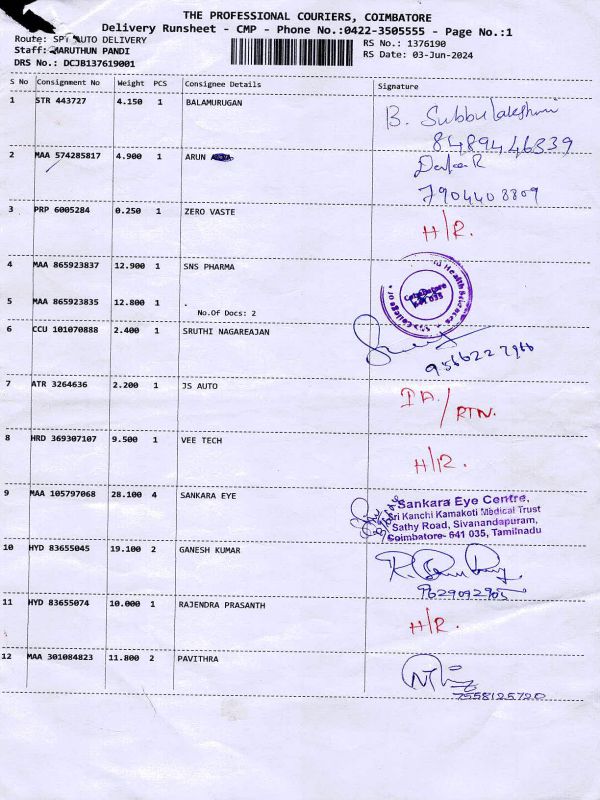 THE PROFESSIONAL COURIERS, COIMBATORE
Delivery Runsheet - CMP - Phone No.:0422-3505555 - Page No.:1
AUTO DELIVERY
Staff: MARUTHUN PANDI
DRS No.: DCJB137619001
RS No.: 1376190
RS Date: 03-Jun-2024
S No Consignment No Weight PCS Consignee Details Signature
1 STR 443727 4.150 1 BALAMURUGAN B. Subbulakshmi
8489446339
2 MAA 574285817 4.900 1 ARUN
7904403809
3 PRP 6005284 0.250 1 ZERO VASTE H/R.
4 MAA 865923837 12.900 1 SNS PHARMA
5 MAA 865923835 12.800 1 .
No.Of Docs: 2
Health Sciences
College of
Coimbatore
6 CCU 101070888 2.400 1 SRUTHI NAGAREAJAN
7 ATR 3264636 2.200 1 JS AUTO
RTN.
8 HRD 369307107 9.500 1 VEE TECH H/R.
9 MAA 105797068 28.100 4 SANKARA EYE Sankara Eye Centre,
Sri Kanchi Kamakoti Medical Trust
Sathy Road, Sivanandapuram,
Coimbatore- 641 035, Tamilnadu
10 HYD 83655045 19.100 2 GANESH KUMAR
9629092905
11 HYD 83655074 10.000 1 RAJENDRA PRASANTH H/R.
12 MAA 301084823 11.800 2 PAVITHRA
7558125720